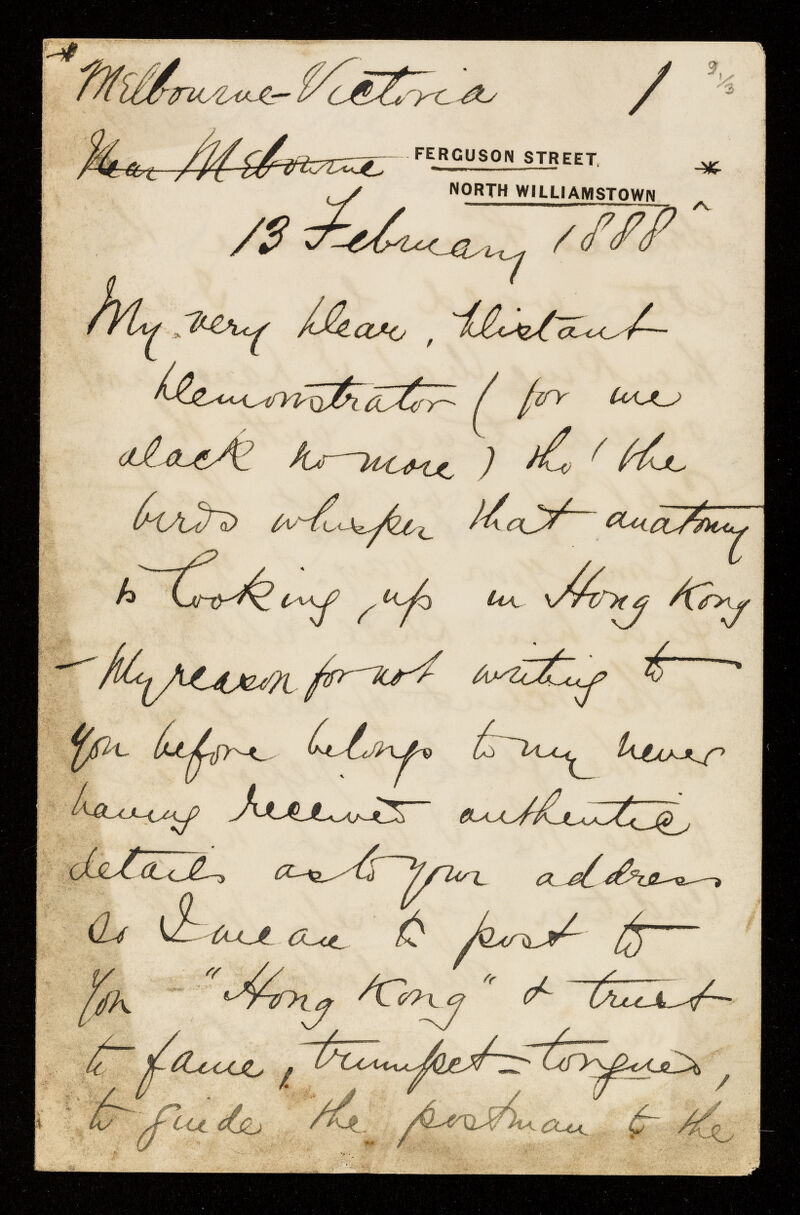 * Melbourne - Victoria 1 9 1/3
Near Melbourne FERGUSON STREET, *
NORTH WILLIAMSTOWN
13 February 1888
My very dear, distant
demonstrator (for me
alack no more) tho' the
birds whisper that anatomy
is looking up in Hong Kong
- My reason for not writing to
you before belongs to my never
having received authentic
details as to your address
so I mean to post to
you "Hong Kong" & trust
to fame, trumpet-tongued,
to guide the postman to the